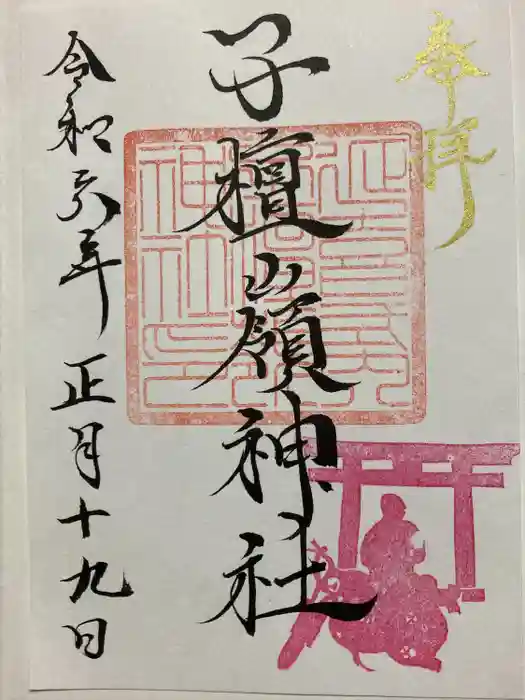 奉拝
子檀嶺神社
令和六年正月十九日